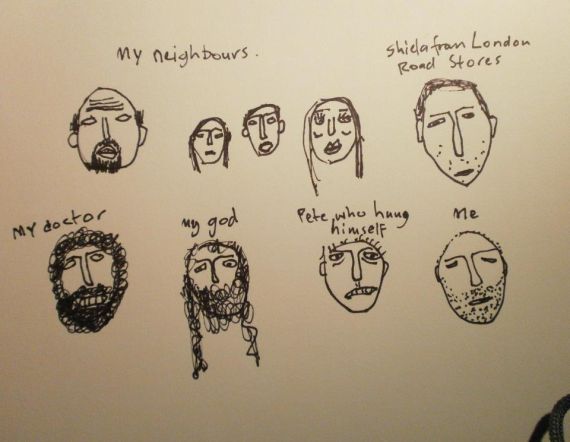 My neighbours.
Shiela from London
Road Stores
My doctor
my god
Pete, who hung
himself
Me